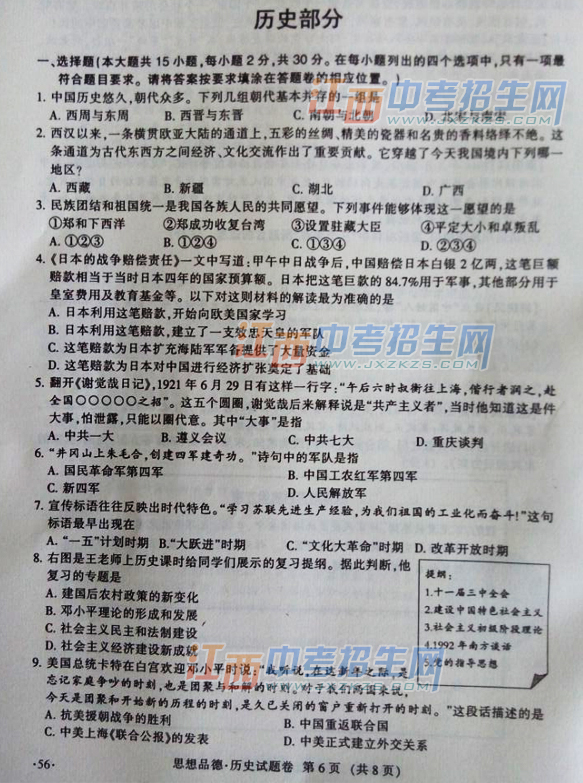 历史部分
一、选择题(本大题共 15 小题,每小题 2 分,共 30 分。在每小题列出的四个选项中,只有一项最
符合题目要求。请将答案按要求填涂在答题卷的相应位置。)
1. 中国历史悠久,朝代众多。下列几组朝代基本并存的一组是
A. 西周与东周 B. 西晋与东晋 C. 南朝与北朝 D.
2. 西汉以来,一条横贯欧亚大陆的通道上,五彩的丝绸、精美的瓷器和名贵的香料络绎不绝。这
条通道为古代东西方之间经济、文化交流作出了重要贡献。它穿越了今天我国境内下列哪一
地区?
A. 西藏 B. 新疆 C. 湖北 D. 广西
3. 民族团结和祖国统一是我国各族人民的共同愿望。下列事件能够体现这一愿望的是
①郑和下西洋 ②郑成功收复台湾 ③设置驻藏大臣 ④平定大小和卓叛乱
A. ①②③ B. ①②④ C. ①③④ D. ②③④
4. 《日本的战争赔偿责任》一文中写道:甲午中日战争后,中国赔偿日本白银 2 亿两,这笔巨额
赔款相当于当时日本四年的国家预算额。日本把这笔巨款的 84.7%用于军事,其他部分用于
皇室费用及教育基金等。以下对这则材料的解读最为准确的是
A. 日本利用这笔赔款,开始向欧美国家学习
B. 日本利用这笔赔款,建立了一支效忠天皇的军队
C. 这笔赔款为日本扩充海陆军军备提供了大量资金
D. 这笔赔款为日本对中国进行经济扩张奠定了基础
5. 翻开《谢觉哉日记》,1921 年 6 月 29 日有这样一行字:“午后六时叔衡往上海,偕行者润之,赴
全国〇〇〇〇〇之招”。这五个圆圈,谢觉哉后来解释说是“共产主义者”,当时他知道这是件
大事,怕泄露,只能以圈代意。其中“大事”是指
A. 中共一大 B. 遵义会议 C. 中共七大 D. 重庆谈判
6. “井冈山上朱毛合,创建四军建奇功。”诗句中的军队是指
A. 国民革命军第四军 B. 中国工农红军第四军
C. 新四军 D. 人民解放军
7. 宣传标语往往反映出时代特色。“学习苏联先进生产经验,为我们祖国的工业化而奋斗!”这句
标语最早出现在
A. “一五”计划时期 B. “大跃进”时期 C. “文化大革命”时期 D. 改革开放时期
8. 右图是王老师上历史课时给同学们展示的复习提纲。据此判断,他
复习的专题是
A. 建国后农村政策的新变化
B. 邓小平理论的形成和发展
C. 社会主义民主和法制建设
D. 社会主义经济建设新成就
提纲:
1.十一届三中全会
2.建设中国特色社会主义
3.社会主义初级阶段理论
4.1992 年南方谈话
5.党的指导思想
9. 美国总统卡特在白宫欢迎邓小平时说:“我听说,在这新年之际,是
忘记家庭争吵的时刻,也是团聚与和解的时刻。对于我们两国来说,
今天是团聚和开始新的历程的时刻,是久已关闭的窗户重新打开的时刻。”这段话描述的是
A. 抗美援朝战争的胜利 B. 中国重返联合国
C. 中美上海《联合公报》的发表 D. 中美正式建立外交关系
·56· 思想品德·历史试题卷 第 6 页 (共 8 页)
江西中考招生网
WWW.JXZKZS.COM
江西中考招生网
WWW.JXZKZS.COM
江西中考招生网
WWW.JXZKZS.COM